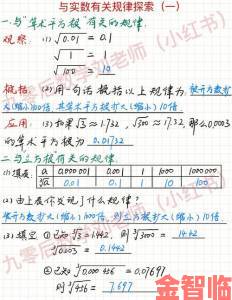 与实数有关规律探索(一)
一.与"算术平方根"有关的规律.
观察: (1) √0.01 = 0.1
√1 = 1
√100 = 10
概括: (2)用一句话概括以上规律为:被开方数扩
大(缩小)100倍,其算术平方根扩大(缩小)10倍.
应用: (3)如果√3≈1.732, √300≈17.32, 那么0.0003
的算术平方根为 0.01732
二.与立方根有关的规律.
(1)填表: a 0.000001 0.001 1 1000 1000000
∛a 0.01 0.1 1 10 100
(2)由上表你发现了什么规律?
被开方数扩大(缩小)1000倍,则立方根扩大(缩小)10倍.
(3)填空 ①已知∛3=1.442, 则∛3000 = 14.42
∛0.003 = 0.1442
②已知∛0.000456 = 0.07697
则∛456 = 7.697
九零后 老师(小红书)
金智临